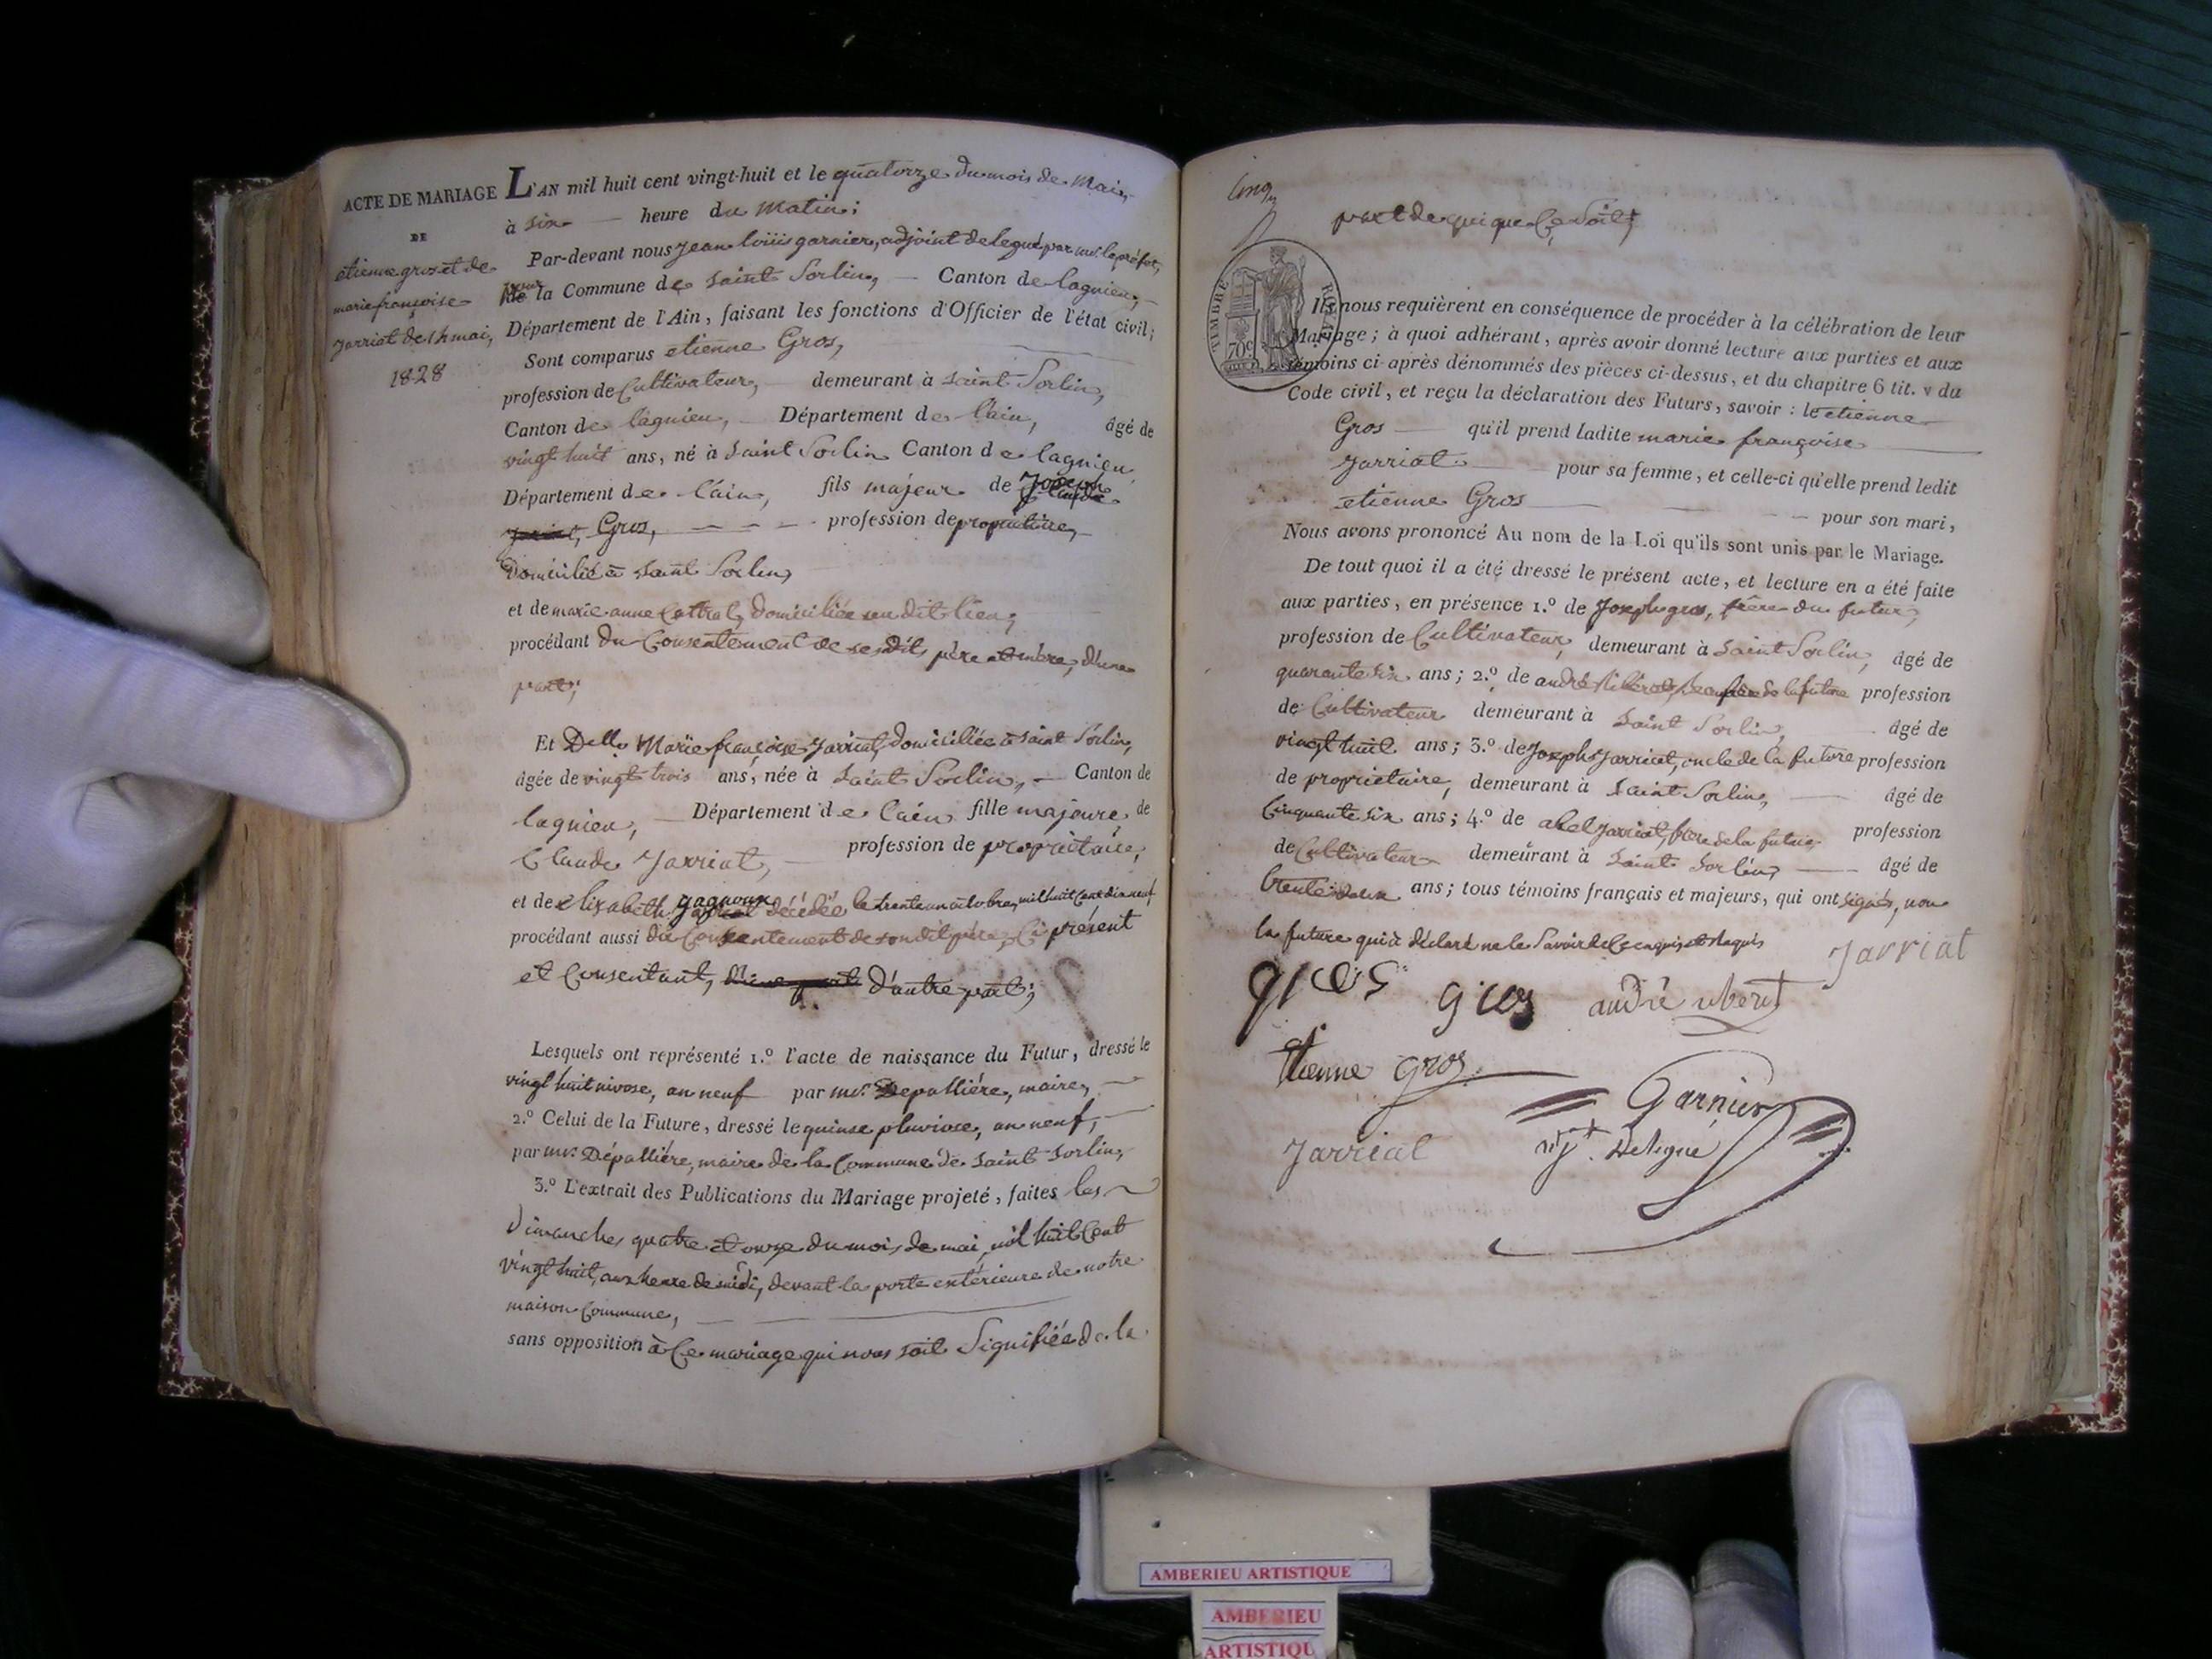 ACTE DE MARIAGE
DE
etienne gros et de
marie françoise
Jarriat de 14 mai,
1828
L'AN mil huit cent vingt-huit et le quatorze du mois de Mai,
à six heure du Matin;
Par-devant nous Jean louis garnier, adjoint delegué par mr. le préfet,
pour la Commune de Saint Sorlin, Canton de lagnieu,
Département de l'Ain, faisant les fonctions d'Officier de l'état civil;
Sont comparus etienne Gros,
profession de Cultivateur, demeurant à Saint Sorlin,
Canton de lagnieu, Département de l'ain, âgé de
vingt huit ans, né à Saint Sorlin Canton de lagnieu
Département de l'ain, fils majeur de
Gros, profession de propriétaire,
Domicilié à Saint Sorlin,
et de marie anne domiciliée au dit lieu;
procédant du Consentement de ses dits père et mère, d'une
part;
Et Delle Marie françoise Jarriat, domiciliée à Saint Sorlin,
âgée de vingt trois ans, née à Saint Sorlin, Canton de
lagnieu, Département de l'ain fille majeure de
Claude Jarriat, profession de propriétaire,
et de elizabeth gagnoux décédée le trente un octobre, mil huit Cent dix neuf
procédant aussi du Consentement de son dit père, Ci présent
et Consentant, d'une part d'autre part;
Lesquels ont représenté 1.º l'acte de naissance du Futur, dressé le
vingt huit nivose, an neuf par mr. Depallière, maire,
2.º Celui de la Future, dressé le quinse pluviose, an neuf,
par mr. Dépallière, maire de la Commune de Saint Sorlin,
3.º L'extrait des Publications du Mariage projeté, faites les
Dimanches quatre et onze du mois de mai, mil huit Cent
vingt huit, aux heure de midi, devant la porte extérieure de notre
maison Commune,
sans opposition à Ce mariage qui nous soit Signifiée de la
Cinq
part de qui que Ce Soit;
TIMBRE ROYAL
70c
Ils nous requièrent en conséquence de procéder à la célébration de leur
Mariage; à quoi adhérant, après avoir donné lecture aux parties et aux
témoins ci-après dénommés des pièces ci-dessus, et du chapitre 6 tit. v du
Code civil, et reçu la déclaration des Futurs, savoir: le etienne
Gros qu'il prend ladite marie françoise
Jarriat pour sa femme, et celle-ci qu'elle prend ledit
etienne Gros pour son mari,
Nous avons prononcé Au nom de la Loi qu'ils sont unis par le Mariage.
De tout quoi il a été dressé le présent acte, et lecture en a été faite
aux parties, en présence 1.º de Joseph gros, frère du futur,
profession de Cultivateur, demeurant à Saint Sorlin, âgé de
quarante six ans; 2.º de andré beau frère de la future profession
de Cultivateur demeurant à Saint Sorlin, âgé de
vingt huit ans; 3.º de Joseph Jarriat, oncle de la future profession
de propriétaire, demeurant à Saint Sorlin, âgé de
Cinquante six ans; 4.º de abel Jarriat, frère de la future, profession
de Cultivateur demeurant à Saint Sorlin, âgé de
trente deux ans; tous témoins français et majeurs, qui ont signés, non
la future qui a déclaré ne le Savoir de Ce enquis et Requis
Jarriat
gros gros andré
Etienne gros
Garnier
Jarriat adjt. Delegué
AMBERIEU ARTISTIQUE
AMBERIEU
ARTISTIQU